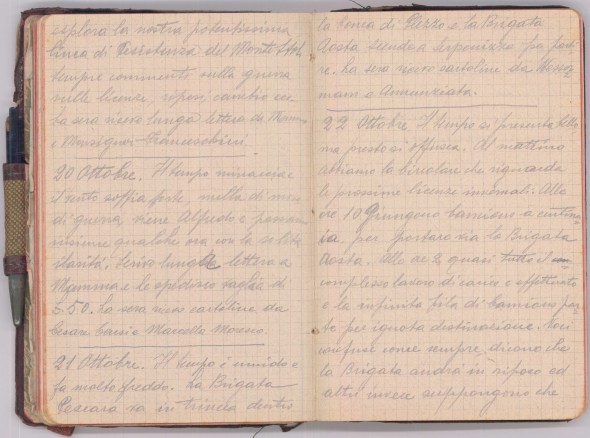 esplora la nostra potentissima
linea di resistenza del Monte
sempre commenti sulla guerra
sulle licenze, riposi, cambio ecc
La sera ricevo lunga lettera da Mamma
e Monsignor Franceschini.
20 Ottobre. Il tempo minaccia e
il vento soffia forte, nulla di nuovo
di guerra, viene Alfredo e passiamo
insieme qualche ora con la solita
ilarità. Scrivo lunga lettera a
Mamma e le spedisco vaglia di
L. 50. La sera ricevo cartoline da
Cesare e Marcella Moreno
21 Ottobre. Il tempo è umido e
fa molto freddo. La Brigata
Pescara va in trincea dentro
la conca di e la Brigata
Aosta scende a per
re. La sera ricevo cartoline da
e Annunziata.
22 Ottobre. Il tempo si presenta bello
ma presto si offusca. Al mattino
abbiamo la circolare che riguarda
le prossime licenze invernali. Alle
ore 10 giungono camions a centina
ia, per portare via la Brigata
Aosta. Alle ore 2 quasi tutto il
complesso lavoro di carico e effettuato
e la infinita fila di camions par
te per ignota destinazione. Voci
confuse come sempre, dicono che
la Brigata andrà in riposo ed
altri invece suppongono che